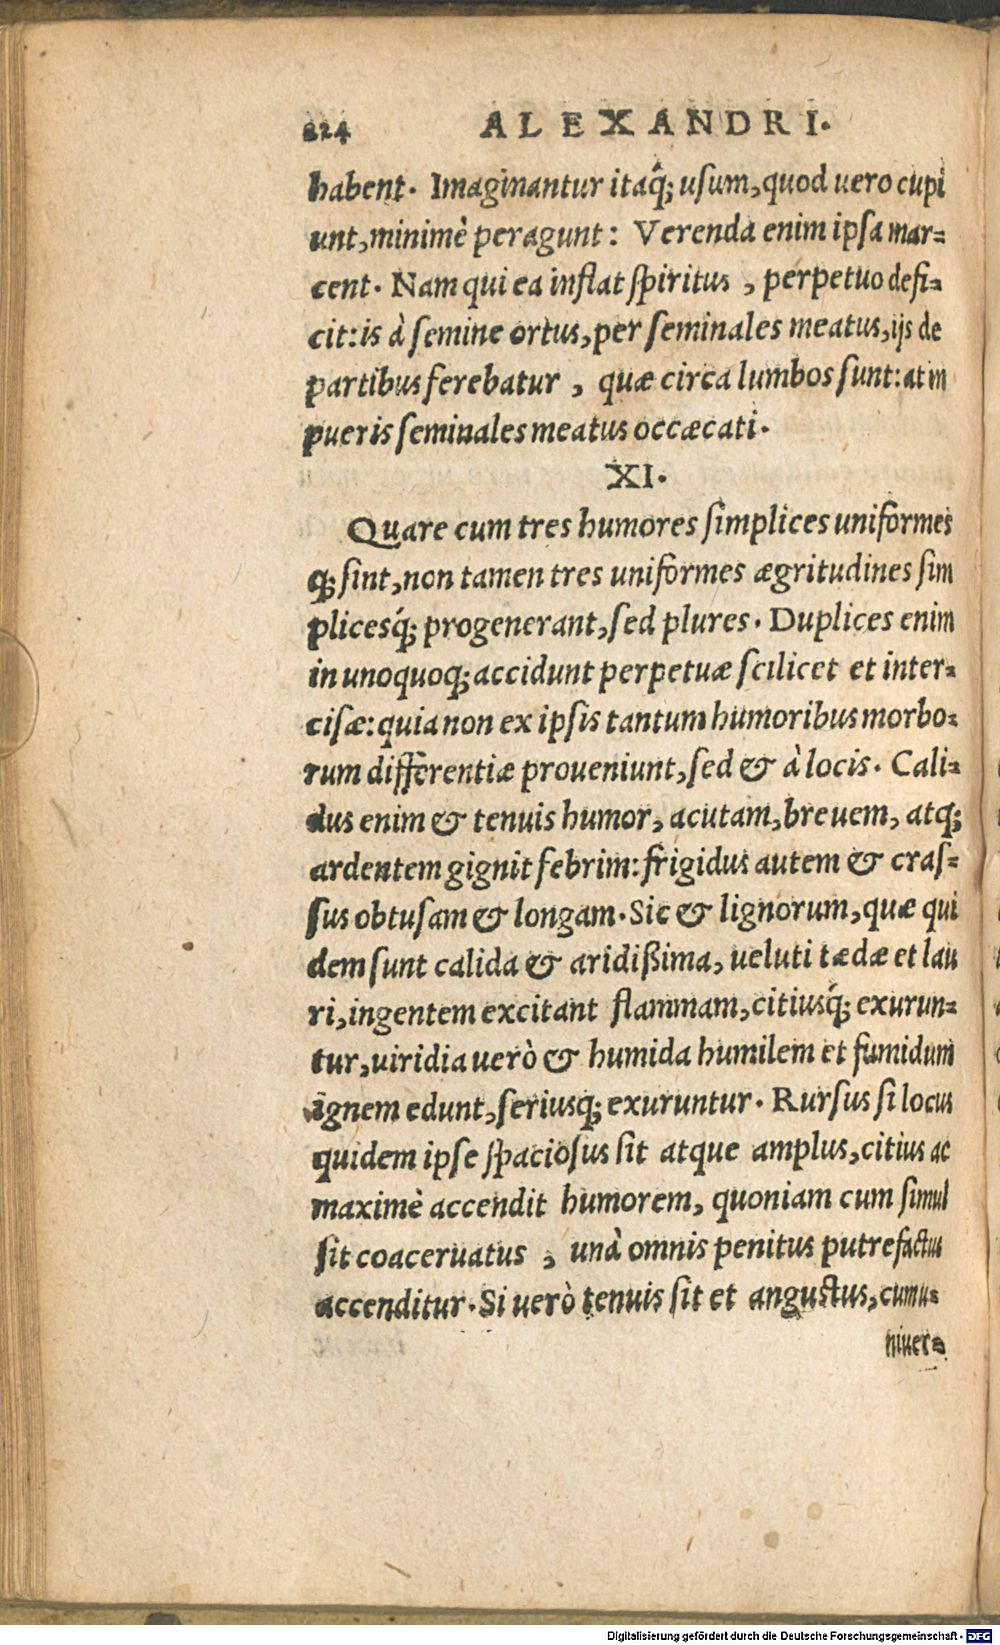 224 ALEXANDRI.
habent. Imaginantur itaq́; usum, quod uero cupi
unt, minimè peragunt: Verenda enim ipsa mar-
cent. Nam qui ea inflat spiritus, perpetuo defi-
cit: is à semine ortus, per seminales meatus, ijs de
partibus ferebatur, quæ circa lumbos sunt: at in
pueris seminales meatus occæcati.
XI.
Quare cum tres humores simplices uniformes
q; sint, non tamen tres uniformes ægritudines sim
plicesq́; progenerant, sed plures. Duplices enim
in unoquoq; accidunt perpetuæ scilicet et inter-
cisæ: quia non ex ipsis tantum humoribus morbo-
rum differentiæ proueniunt, sed & à locis. Cali-
dus enim & tenuis humor, acutam, breuem, atq;
ardentem gignit febrim: frigidus autem & cras-
sus obtusam & longam. Sic & lignorum, quæ qui
dem sunt calida & aridißima, ueluti tædæ et lau
ri, ingentem excitant flammam, citiusq́; exurun-
tur, uiridia uerò & humida humilem et fumidum
ignem edunt, seriusq; exuruntur. Rursus si locus
quidem ipse spaciosus sit atque amplus, citius ac
maximè accendit humorem, quoniam cum simul
sit coaceruatus, unà omnis penitus putrefactus
accenditur. Si uerò tenuis sit et angustus, cumu-
niuer-
Digitalisierung gefördert durch die Deutsche Forschungsgemeinschaft - DFG